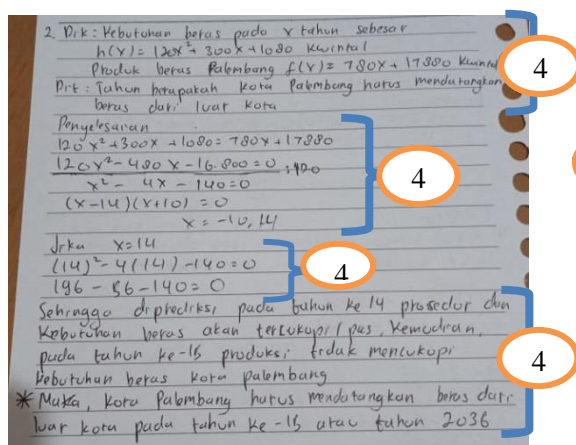 2. Dik : Kebutuhan beras pada x tahun sebesar
h(x) = 120x² + 300x + 1080 Kwintal
Produk beras Palembang f(x) = 780x + 17880 Kwintal
Dit : Tahun berapakah Kota Palembang harus mendatangkan
beras dari luar kota
4
Penyelesaian
120x² + 300x + 1080 = 780x + 17880
120x² - 480x - 16.800 = 0 : 120
x² - 4x - 140 = 0
(x-14)(x+10) = 0
x = -10, 14
4
Jika x = 14
(14)² - 4(14) - 140 = 0
196 - 56 - 140 = 0
4
Sehingga diprediksi pada tahun ke 14 prosedur dan
Kebutuhan beras akan tercukupi / pas, kemudian,
pada tahun ke-15 produksi tidak mencukupi
kebutuhan beras kota palembang
* Maka, kota Palembang harus mendatangkan beras dari
luar kota pada tahun ke-15 atau tahun 2036
4